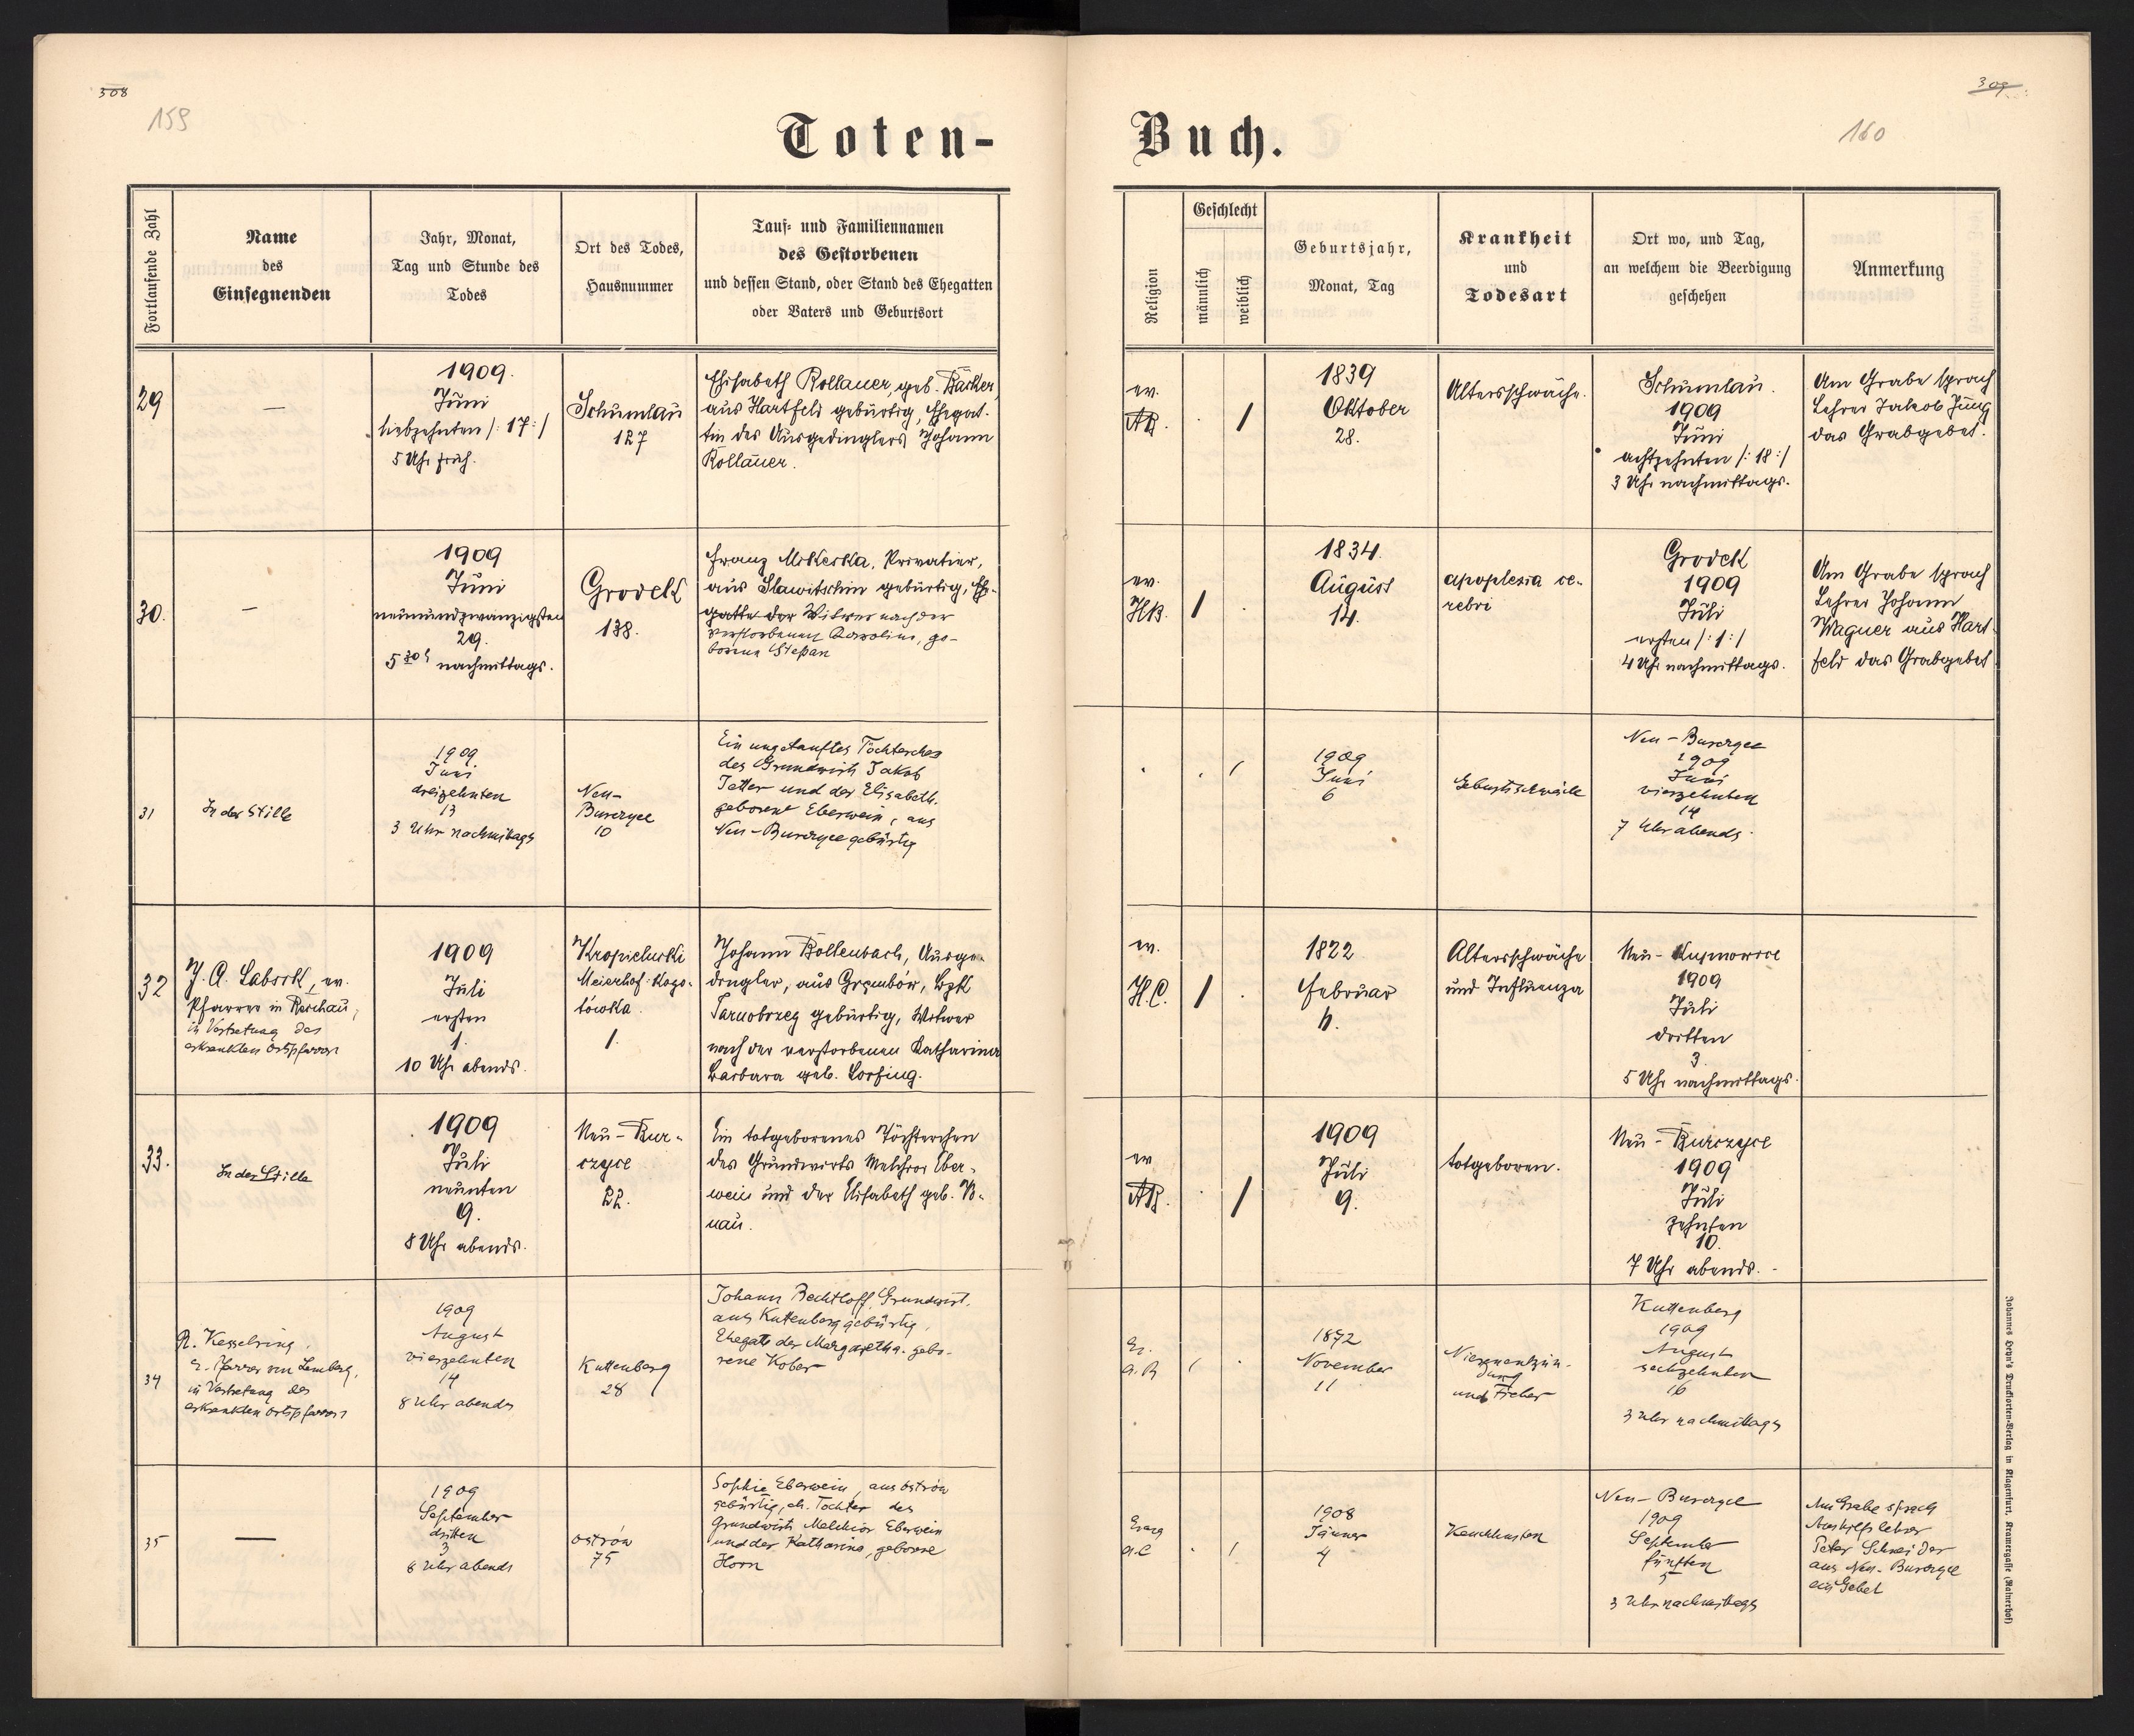 308
159
Toten-
Fortlaufende Zahl
Name
des
Einsegnenden
Jahr, Monat,
Tag und Stunde des
Todes
Ort des Todes,
Hausnummer
Tauf- und Familiennamen
des Gestorbenen
und dessen Stand, oder Stand des Ehegatten
oder Vaters und Geburtsort
29
—
1909.
Juni
siebzehnten /: 17 :/
5 Uhr früh.
Schumlau
127
Elisabeth Kollauer, geb. Bäcker,
aus Hartfeld gebürtig, Ehegat-
tin des Ausgedinglers Johann
Kollauer.
30.
—
1909
Juni
neunundzwanzigsten
29.
5 30 h nachmittags.
Grodek
138.
Franz Mikeska, Privatier,
aus Slawitschin gebürtig, Ehe-
gatte der Witwer nach der
verstorbenen Karoline, ge-
borene Stepan
31
In der Stille
1909
Juni
dreizehnten
13
3 Uhr nachmittags
Neu-
Burczyce
10
Ein ungetauftes Töchterchen
des Grundwirth Jakob
Tetter und der Elisabeth
geborene Eberwein, aus
Neu-Burczyce gebürtig
32
J. A. Labsik, ev.
Pfarrer in Reichau,
in Vertretung des
erkrankten Ortspfarrers
1909
Juli
ersten
1.
10 Uhr abends.
Kropielniki
Meierhof
1.
Johann Bollenbach, Ausge-
dingler, aus Grembów, Bzk
Tarnobrzeg gebürtig, Witwer
nach der verstorbenen Katharina
Barbara geb. Lorsing.
33.
In der Stille
1909
Juli
neunten
9.
8 Uhr abends.
Neu-Bur-
czyce
22.
Ein totgeborenes Töchterchen
des Grundwirts Melchior Eber-
wein und der Elisabeth geb.
nau.
34
R. Kesselring,
E. Pfarrer von Lemberg,
in Vertretung des
erkrankten Ortspfarrers
1909
August
vierzehnten
14
8 Uhr abends
Kuttenberg
28
Johann Bechtloff, Grundwirt,
aus Kuttenberg gebürtig,
Ehegatte der Margaretha gebo-
rene Kober
35
—
1909
September
dritten
3
6 Uhr abends
Ostrów
75
Sophie Eberwein, aus Ostrów
gebürtig, eh. Tochter des
Grundwirts Melchior Eberwein
und der Katharina, geborene
Horn
309
160
Buch.
Religion
Geschlecht
männlich
weiblich
Geburtsjahr,
Monat, Tag
Krankheit
und
Todesart
Ort wo, und Tag,
an welchem die Beerdigung
geschehen
Anmerkung
ev.
AB.
/
1839
Oktober
28.
Altersschwäche.
Schumlau.
1909
Juni
achtzehnten /: 18 :/
3 Uhr nachmittags.
Am Grabe sprach
Lehrer Jakob Jung
das Grabgebet.
ev.
HB.
/
1834.
August
14.
apoplexia ce-
rebri
Grodek
1909
Juli
ersten /: 1 :/
4 Uhr nachmittags.
Am Grabe sprach
Lehrer Johann
Wagner aus Hart-
feld das Grabgebet
/
1909
Juni
6
Geburtsschwäche
Neu-Burczyce
1909
Juni
vierzehnten
14
7 Uhr abends.
ev.
H.C.
/
1822
Februar
Altersschwäche
und Influenza
Neu-Kupnowice
1909
Juli
dritten
3.
5 Uhr nachmittags.
ev
AB.
/
1909
Juli
9.
totgeboren.
Neu-Burczyce
1909
Juli
zehnten
10.
7 Uhr abends.
Ev.
A.B
/
1872
November
11
Nierenentzün-
dung
und Fieber
Kuttenberg
1909
August
sechzehnten
16
3 Uhr nachmittags
Evang
A.C
/
1908
Jänner
4
Keuchhusten
Neu-Burczyce
1909
September
fünften
5
3 Uhr nachmittags
Am Grabe sprach
Aushilfslehrer
Peter Schneider
aus Neu-Burczyce
ein Gebet
Johannes Heyn's Drucksorten-Verlag in Klagenfurt, Kramergasse (Rainerhof)